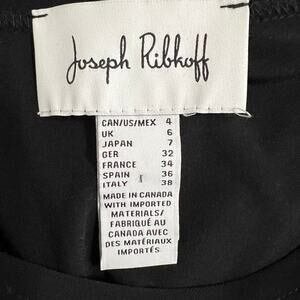 Joseph Ribkoff
CAN/US/MEX 4
UK 6
JAPAN 7
GER 32
FRANCE 34
SPAIN 36
ITALY 38
MADE IN CANADA
WITH IMPORTED
MATERIALS/
FABRIQUÉ AU
CANADA AVEC
DES MATÉRIAUX
IMPORTÉS